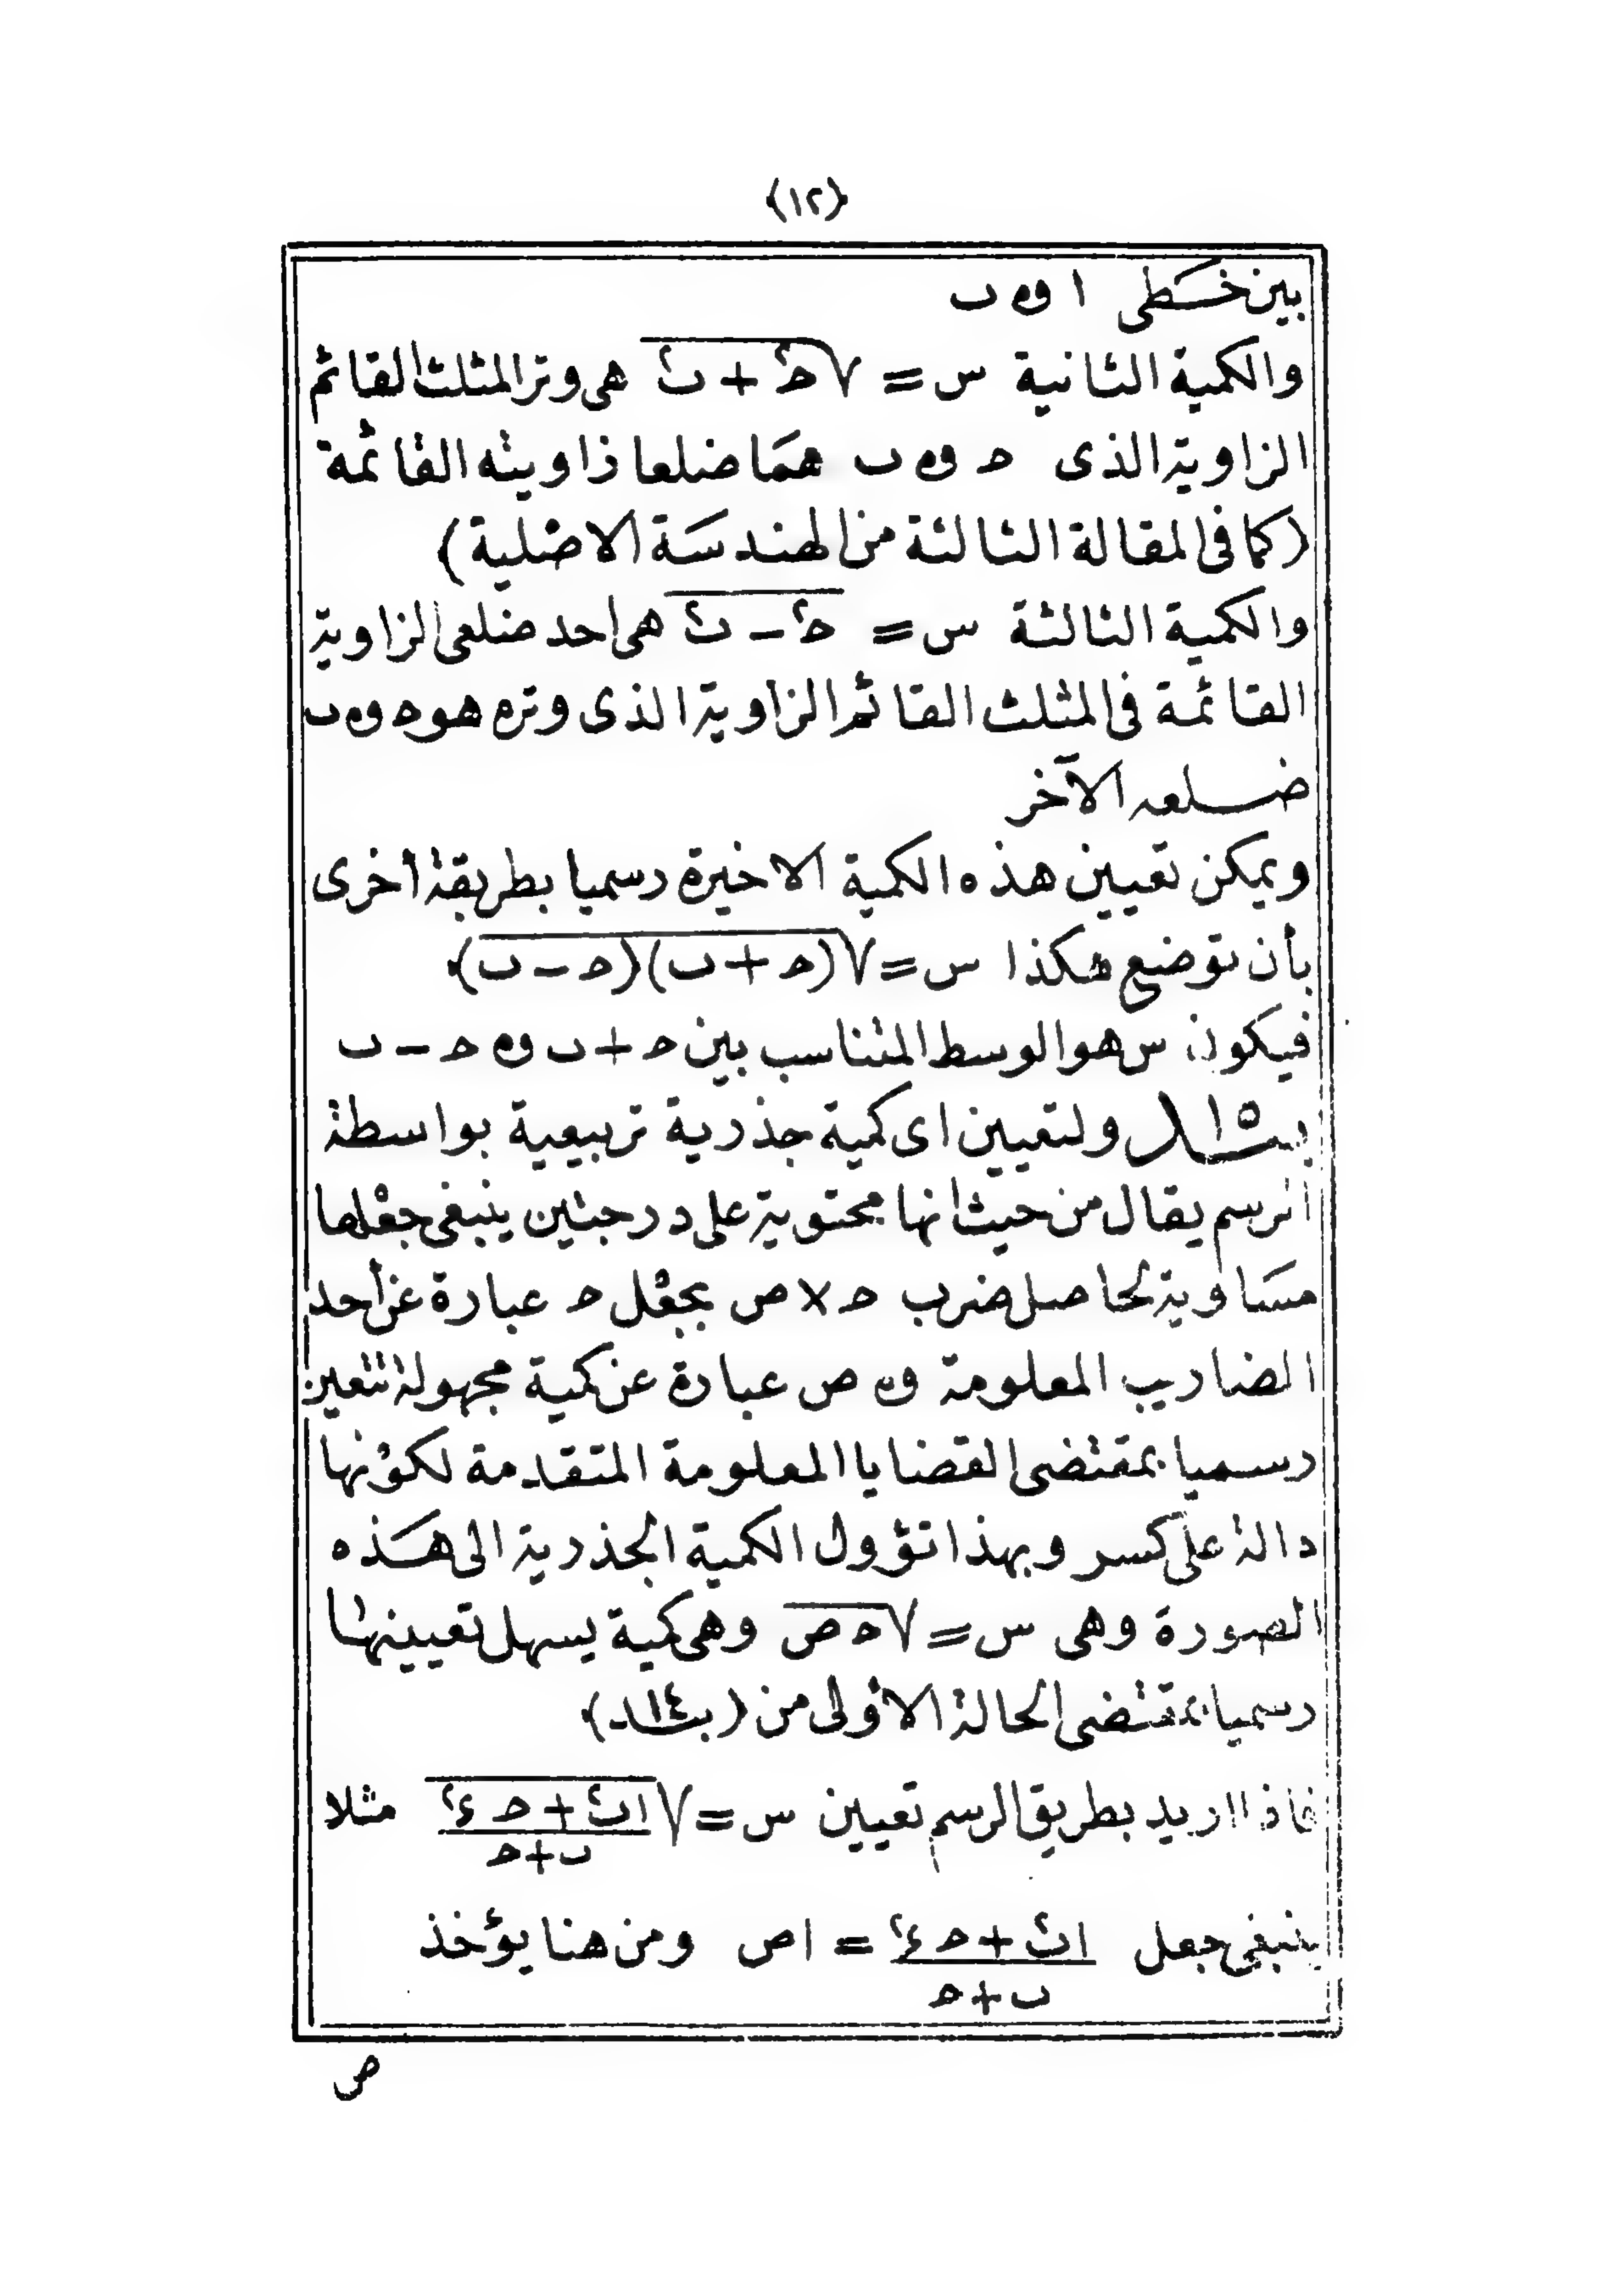 (١٢)
بين خطى ا و ں
والكمية الثانية س = √(حـ٢ + ں٢) هى وتر المثلث القائم
الزاوية الذى حـ و ں هما ضلعا زاويته القائمة
(كما فى المقالة الثالثة من الهندسة الاصلية)
والكمية الثالثة س = حـ٢ − ں٢ هى احد ضلعى الزاوية
القائمة فى المثلث القائم الزاوية الذى وتره هو حـ و ں
ضلعه الآخر
ويمكن تعيين هذه الكمية الاخيرة رسميا بطريقة أخرى
بأن توضع هكذا س = √(حـ + ں)(حـ − ں)
فيكون س هو الوسط المتناسب بين حـ + ں و حـ − ں
بند ١٥ ولتعيين اى كمية جذرية تربيعية بواسطة
الرسم يقال من حيث انها محتوية على درجتين ينبغى جعلها
مساوية لحاصل ضرب حـ × ص بجعل حـ عبارة عن أحد
المضاريب المعلومة و ص عبارة عن كمية مجهولة تتعين
رسميا بمقتضى القضايا المعلومة المتقدمة لكونها
دالة على كسر وبهذا تؤول الكمية الجذرية الى هذه
الصورة وهى س = √حـ ص وهى كمية يسهل تعيينها
رسميا بمقتضى الحالة الاولى من (بند ١٤)
فاذا اريد بطريق الرسم تعيين س = √((اں٢ + حـ ء٢) / (ں + حـ)) مثلا
ينبغى جعل (اں٢ + حـ ء٢) / (ں + حـ) = اص ومن هنا يؤخذ
ص